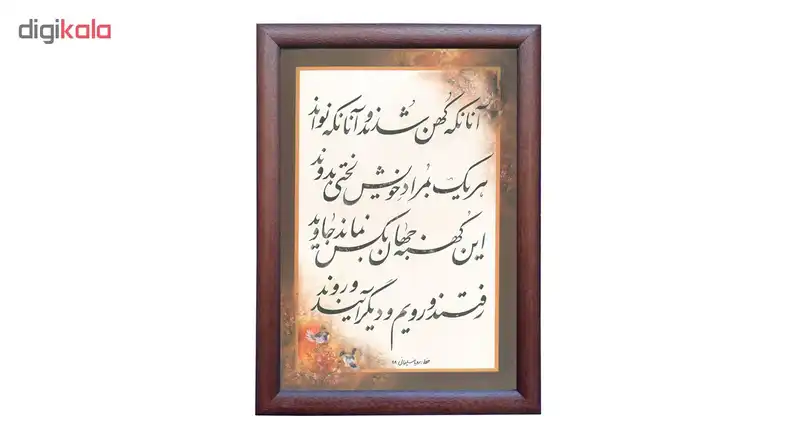 digikala
آنانکه کُهن شُدند و آنانکه نواند
هر یک بمُرادِ خویش لختی بدوند
این کُهنه جهان بکس نماند جاوید
رفتند و رویم و دیگر آیند و روند